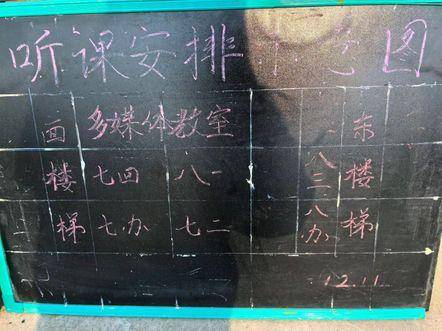 听课安排示意图
面 多媒体教室 东
楼 七四 八一 八三 楼
梯 七办 七二 八办 梯
12.11